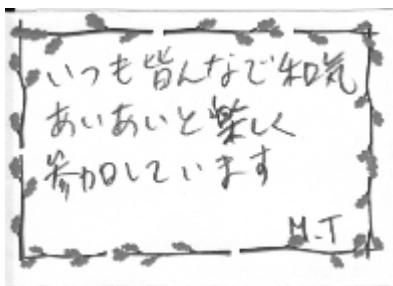 いつも皆んなで和気
あいあいと楽しく
参加しています
M.T